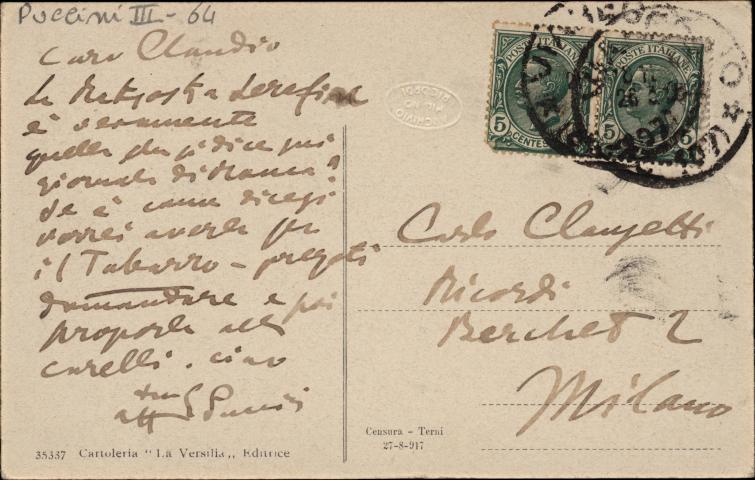 Puccini III - 64
Caro Claudio
la Serafin
è veramente
quella che si dice nei
giornali di
Se è come dicesi
vorrei averla per
il Tabarro - pregoti
domandare e poi
proporla alla
Carelli. ciao
tuo
aff G Puccini
ARCHIVIO
RICORDI
MILANO
POSTE ITALIANE
5 CENTES
POSTE ITALIANE
5 5
Carlo Clausetti
Ricordi
Berchet 2
Milano
Censura - Terni
27-8-917
35337 Cartoleria "La Versilia„ Editrice